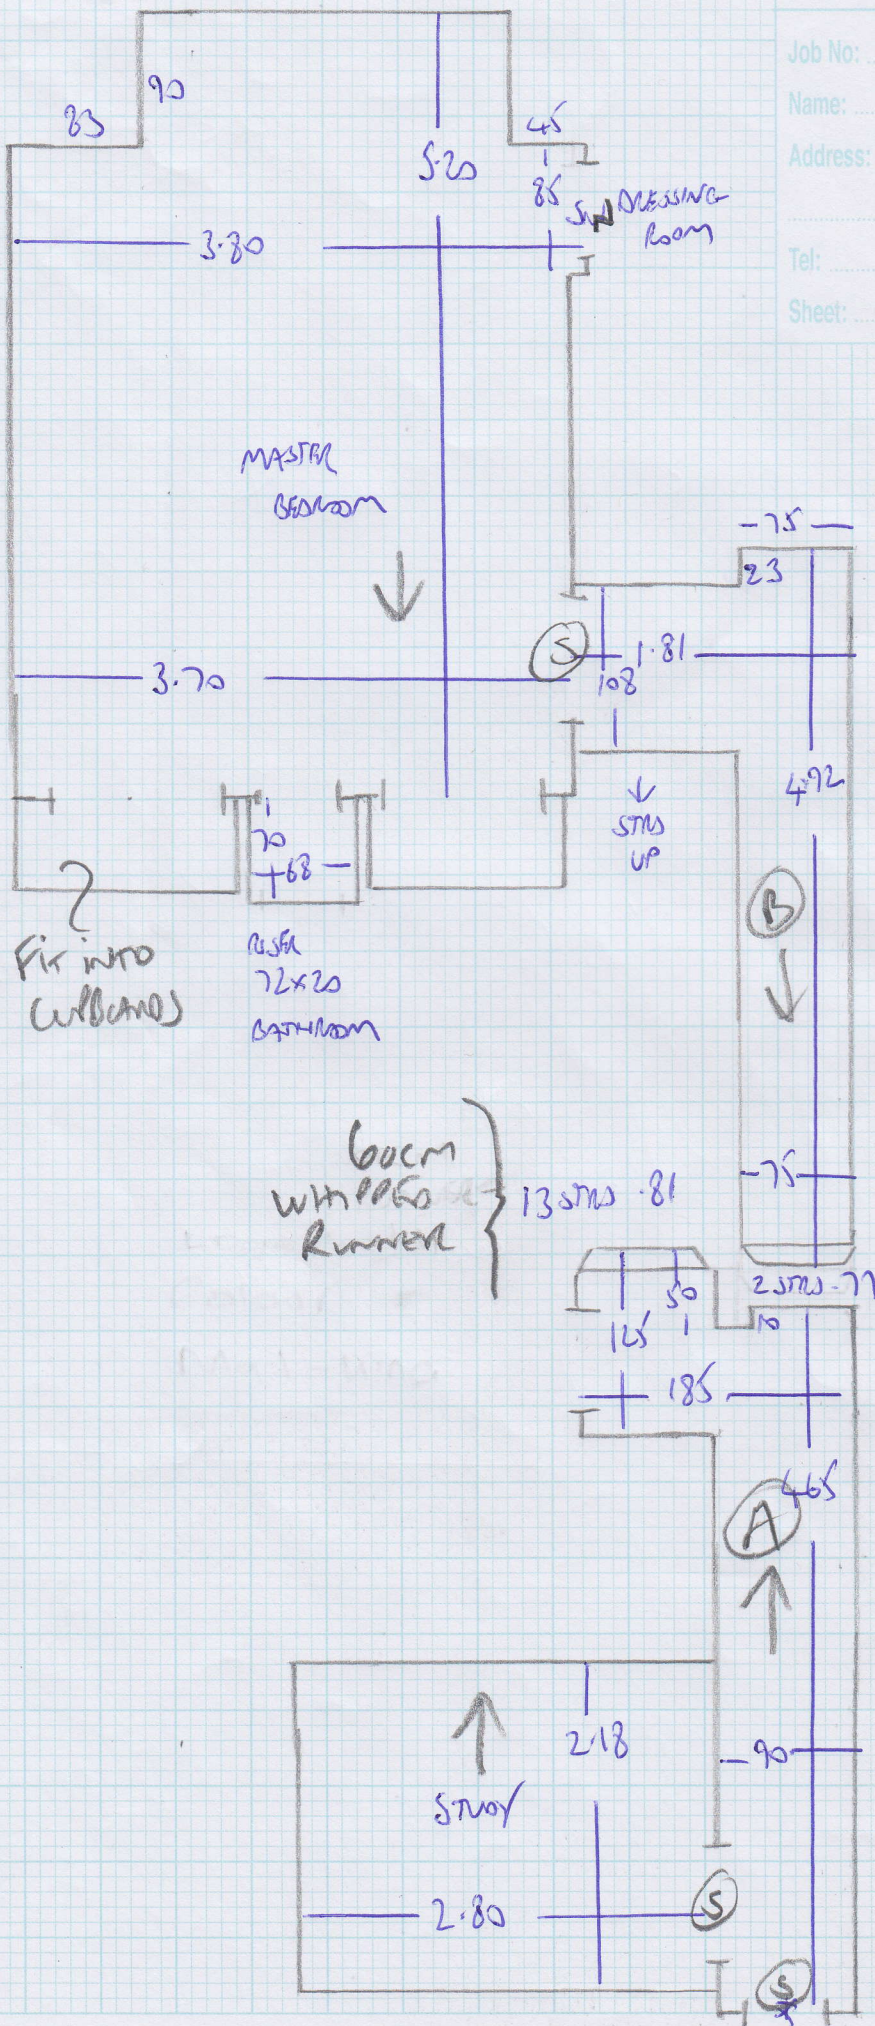 Job No:
Name:
Address:
Tel:
Sheet:
83
90
5.20
45
85
DRESSING
ROOM
3.80
MASTER
BEDROOM
75
23
S
1.81
108
3.70
4.92
STRS
UP
70
68
B
FIT INTO
CUPBOARDS
RISER
72x20
BATHROOM
60CM
WHIPPED
RUNNER
13 STRS .81
75
2 STRS - 77
50
10
125
185
465
A
2.18
90
STUDY
2.80
S
S